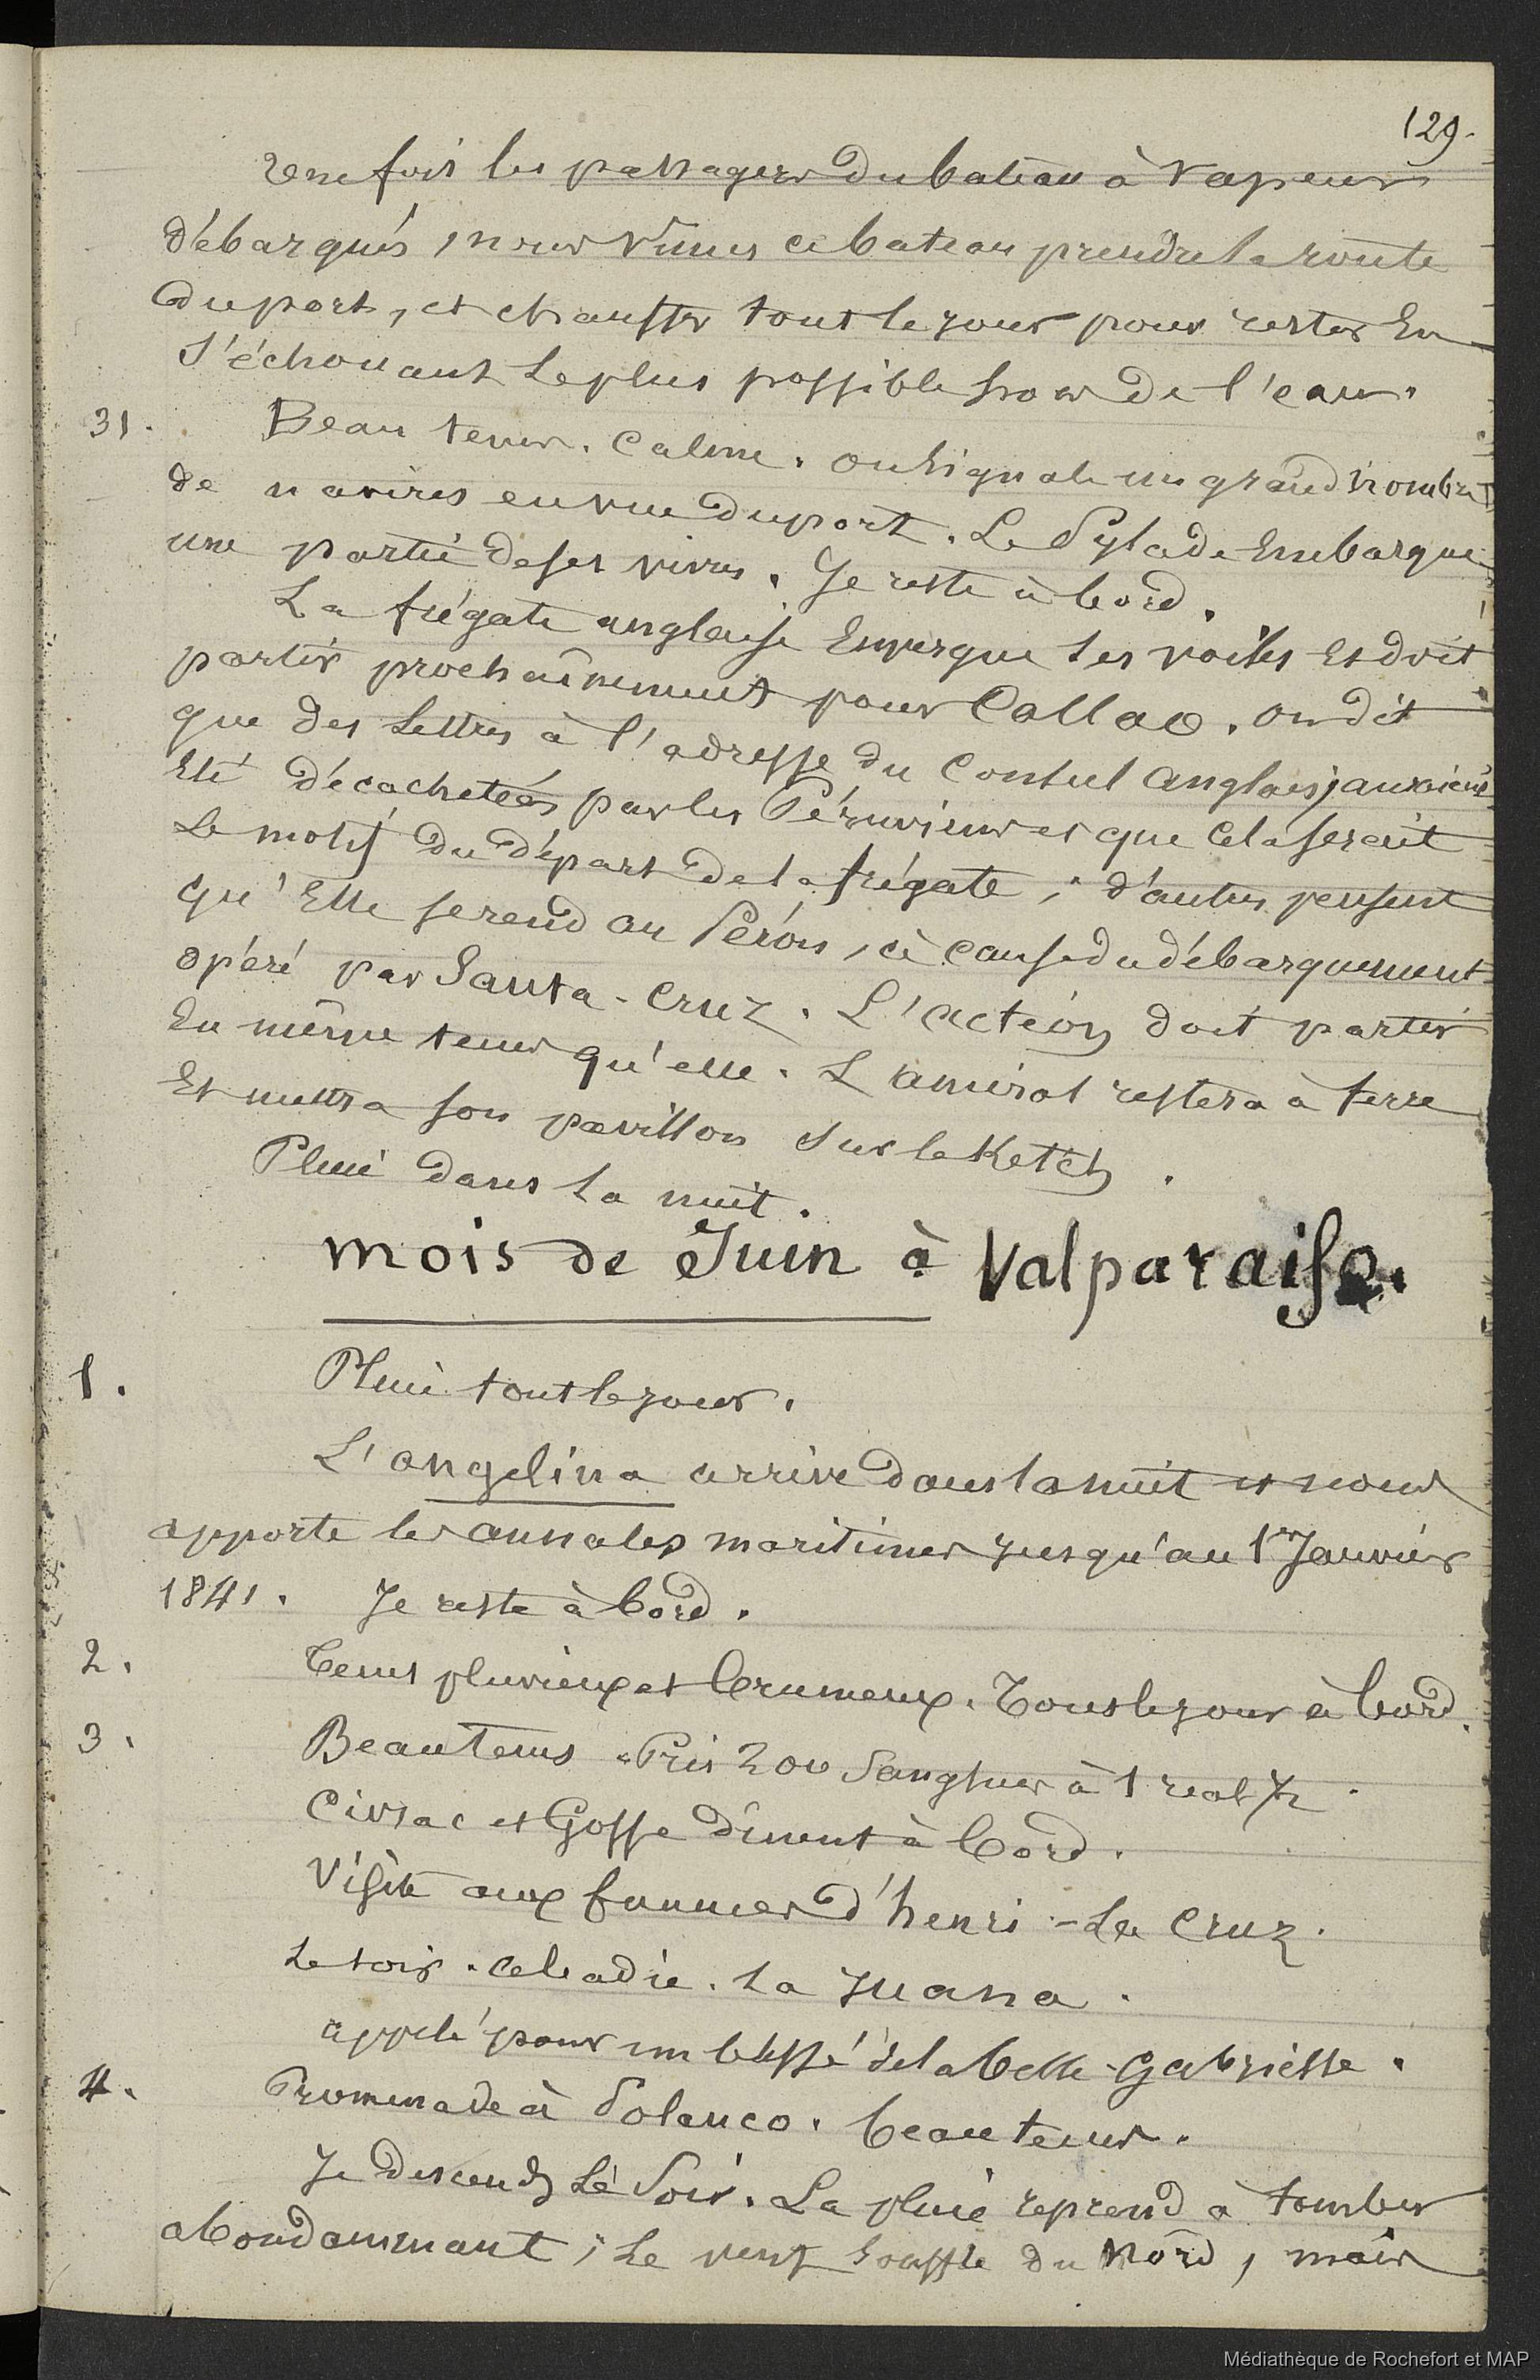 129.
Une fois les passagers du bateau à vapeur
débarqués, nous vîmes ce bateau prendre la route
du port, et chauffer tout le jour pour rester en
s'échouant le plus possible hors de l'eau.
31. Beau tems. Calme. on signale un grand nombre
de navires en vue du port. Le Pylade embarque
une partie de ses vivres. Je reste à bord.
La frégate anglaise envergue ses voiles et doit
partir prochaînement pour Callao. on dit
que des lettres à l'adresse du Consul anglais, auraient
été décachetées par les Péruviens et que cela serait
le motif du départ de la frégate ; d'autres pensent
qu'elle se rend au Pérou, à cause du débarquement
opéré par Santa-Cruz. L'actéon doit partir
en même tems qu'elle. L'amiral restera à terre
et mettra son pavillon sur le Ketch.
Pluie dans la nuit.
mois de Juin à Valparaiso.
1. Pluie tout le jour.
L'angelina arrive dans la nuit et nous
apporte les annales maritimes jusqu'au 1er Janvier
1841. Je reste à bord.
2. Tems pluvieux et brumeux. Tous le jour à bord.
3. Beau tems. Pris 200 Sangsues à 1 real ½
Civrac et Gosse dînent à bord.
Visite aux femmes d'henri - La Cruz.
Le soir. . La Juana.
appelé pour un blessé de la belle-Gabrielle.
4. Promenade à Polanco. beau tems.
Je descends le soir. La pluie reprend à tomber
abondammant ; le vent souffle du Nord, mais
Médiathèque de Rochefort et MAP